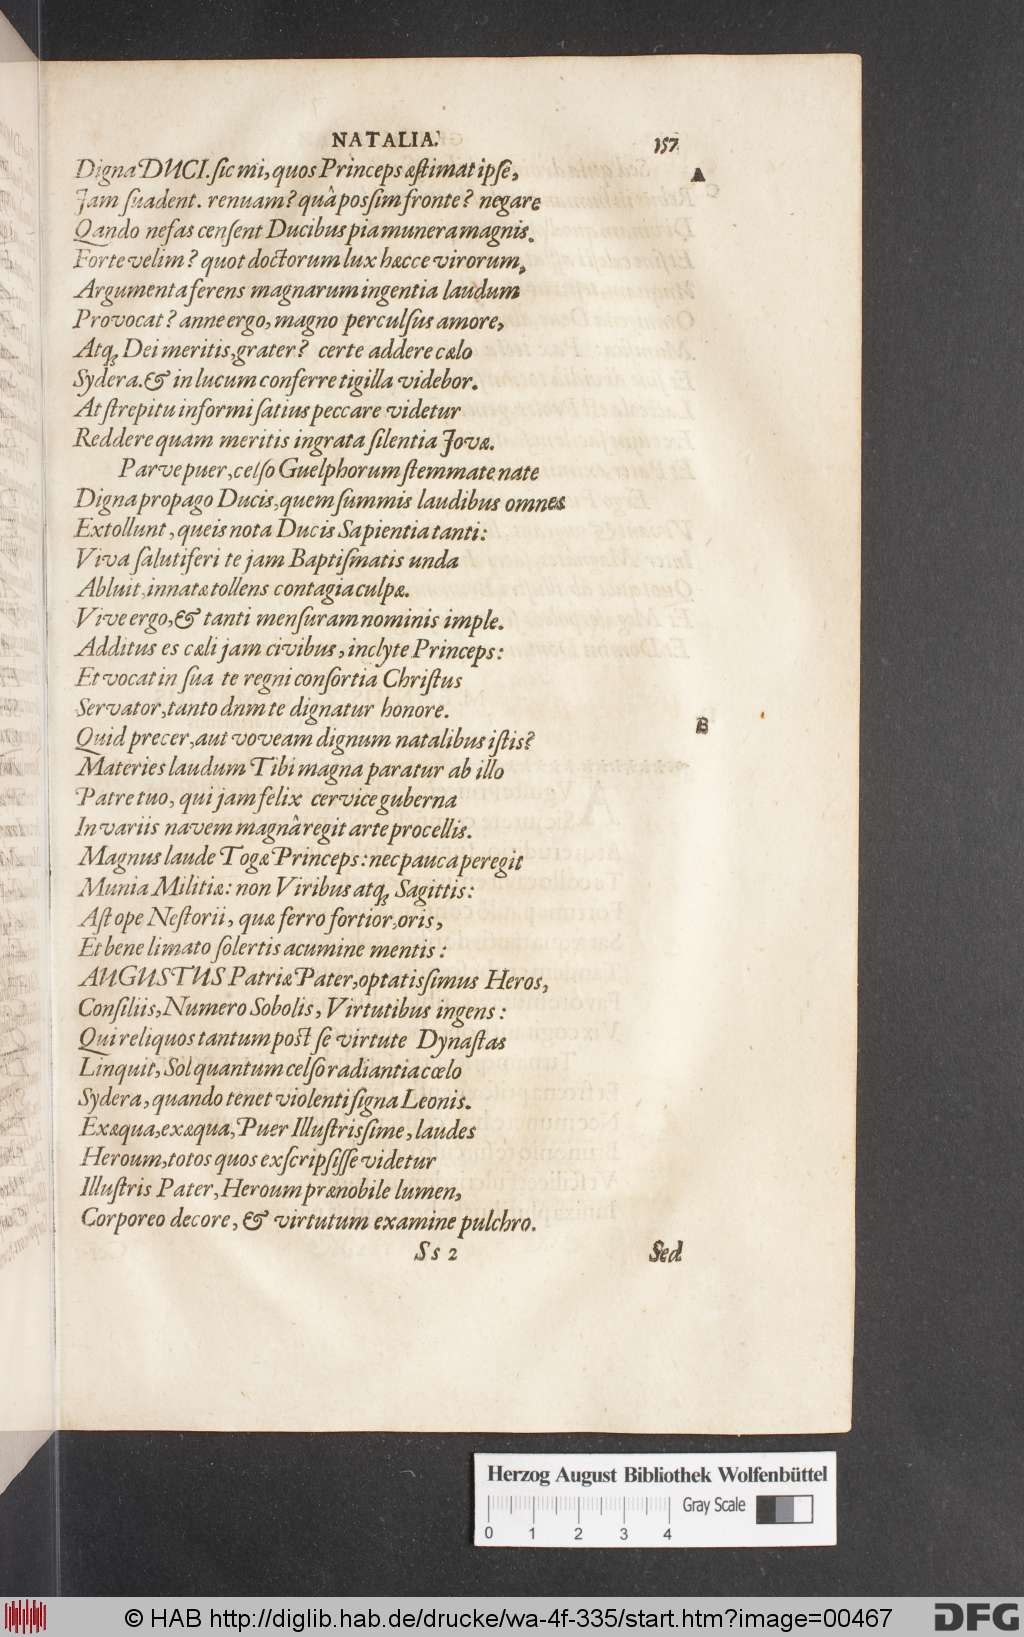 NATALIA.
157
A
Digna DUCI. sic mi, quos Princeps æstimat ipse,
Jam suadent. renuam? quâ possim fronte? negare
Qando nefas censent Ducibus pia munera magnis.
Forte velim? quot doctorum lux hæcce virorum,
Argumenta ferens magnarum ingentia laudum
Provocat? anne ergo, magno perculsus amore,
Atq; Dei meritis, grater? certe addere cælo
Sydera. & in lucum conferre tigilla videbor.
At strepitu informi satius peccare videtur
Reddere quam meritis ingrata silentia Jovæ.
Parve puer, celso Guelphorum stemmate nate
Digna propago Ducis, quem summis laudibus omnes
Extollunt, queis nota Ducis Sapientia tanti:
Viva salutiferi te jam Baptismatis unda
Abluit, innatæ tollens contagia culpæ.
Vive ergo, & tanti mensuram nominis imple.
Additus es cæli jam civibus, inclyte Princeps:
Et vocat in sua te regni consortia Christus
Servator, tanto dnm te dignatur honore.
B
Quid precer, aut voveam dignum natalibus istis?
Materies laudum Tibi magna paratur ab illo
Patre tuo, qui jam felix cervice guberna
In variis navem magnâ regit arte procellis.
Magnus laude Togæ Princeps: nec pauca peregit
Munia Militiæ: non Viribus atq; Sagittis:
Ast ope Nestorii, quæ ferro fortior, oris,
Et bene limato solertis acumine mentis:
AUGUSTUS Patriæ Pater, optatissimus Heros,
Consiliis, Numero Sobolis, Virtutibus ingens:
Qui reliquos tantum post se virtute Dynastas
Linquit, Sol quantum celso radiantia cœlo
Sydera, quando tenet violenti signa Leonis.
Exæqua, exæqua, Puer Illustrissime, laudes
Heroum, totos quos exscripsisse videtur
Illustris Pater, Heroum prænobile lumen,
Corporeo decore, & virtutum examine pulchro.
Ss 2
Sed
Herzog August Bibliothek Wolfenbüttel
Gray Scale
0 1 2 3 4
© HAB http://diglib.hab.de/drucke/wa-4f-335/start.htm?image=00467
DFG